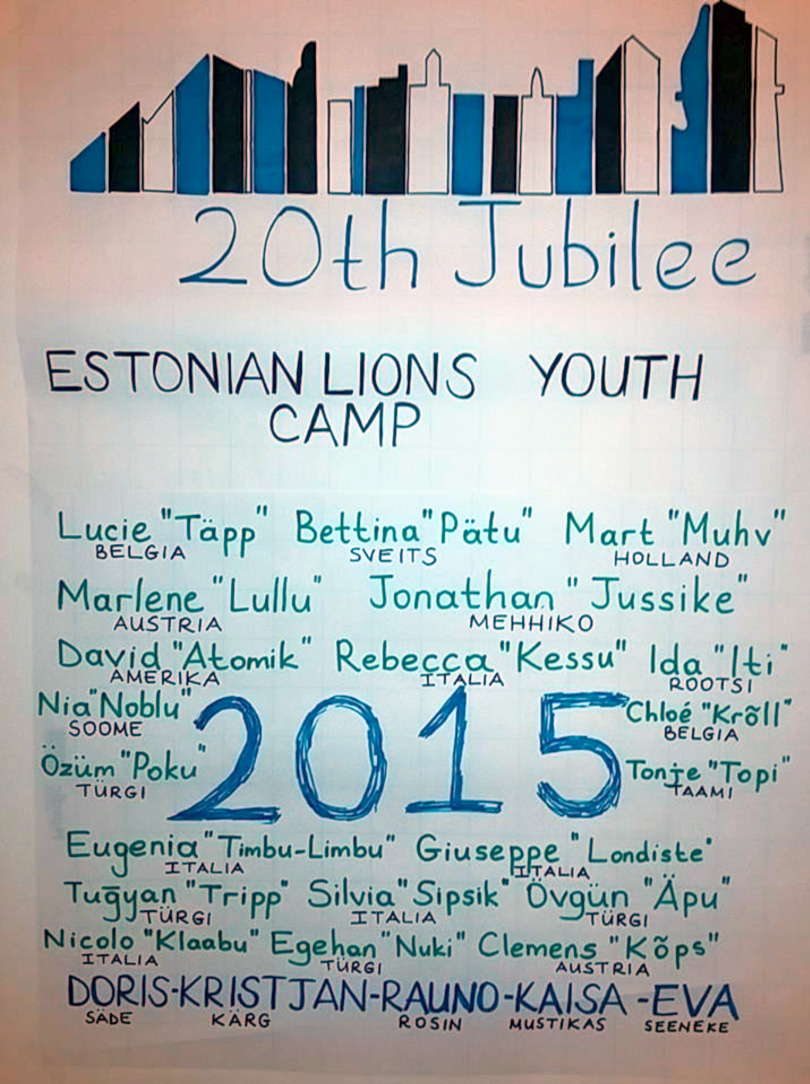 20th Jubilee
ESTONIAN LIONS YOUTH
CAMP
Lucie "Täpp" Bettina "Pätu" Mart "Muhv"
BELGIA SVEITS HOLLAND
Marlene "Lullu" Jonathan "Jussike"
AUSTRIA MEHHIKO
David "Atomik" Rebecca "Kessu" Ida "Iti"
AMERIKA ITALIA ROOTSI
Nia "Noblu" 2015 Chloé "Krõll"
SOOME BELGIA
Özüm "Poku" Tonje "Topi"
TÜRGI TAAMI
Eugenia "Timbu-Limbu" Giuseppe "Londiste"
ITALIA ITALIA
Tuğyan "Tripp" Silvia "Sipsik" Övgün "Äpu"
TÜRGI ITALIA TÜRGI
Nicolo "Klaabu" Egehan "Nuki" Clemens "Kõps"
ITALIA TÜRGI AUSTRIA
DORIS-KRISTJAN-RAUNO-KAISA-EVA
SÄDE KÄRG ROSIN MUSTIKAS SEENEKE